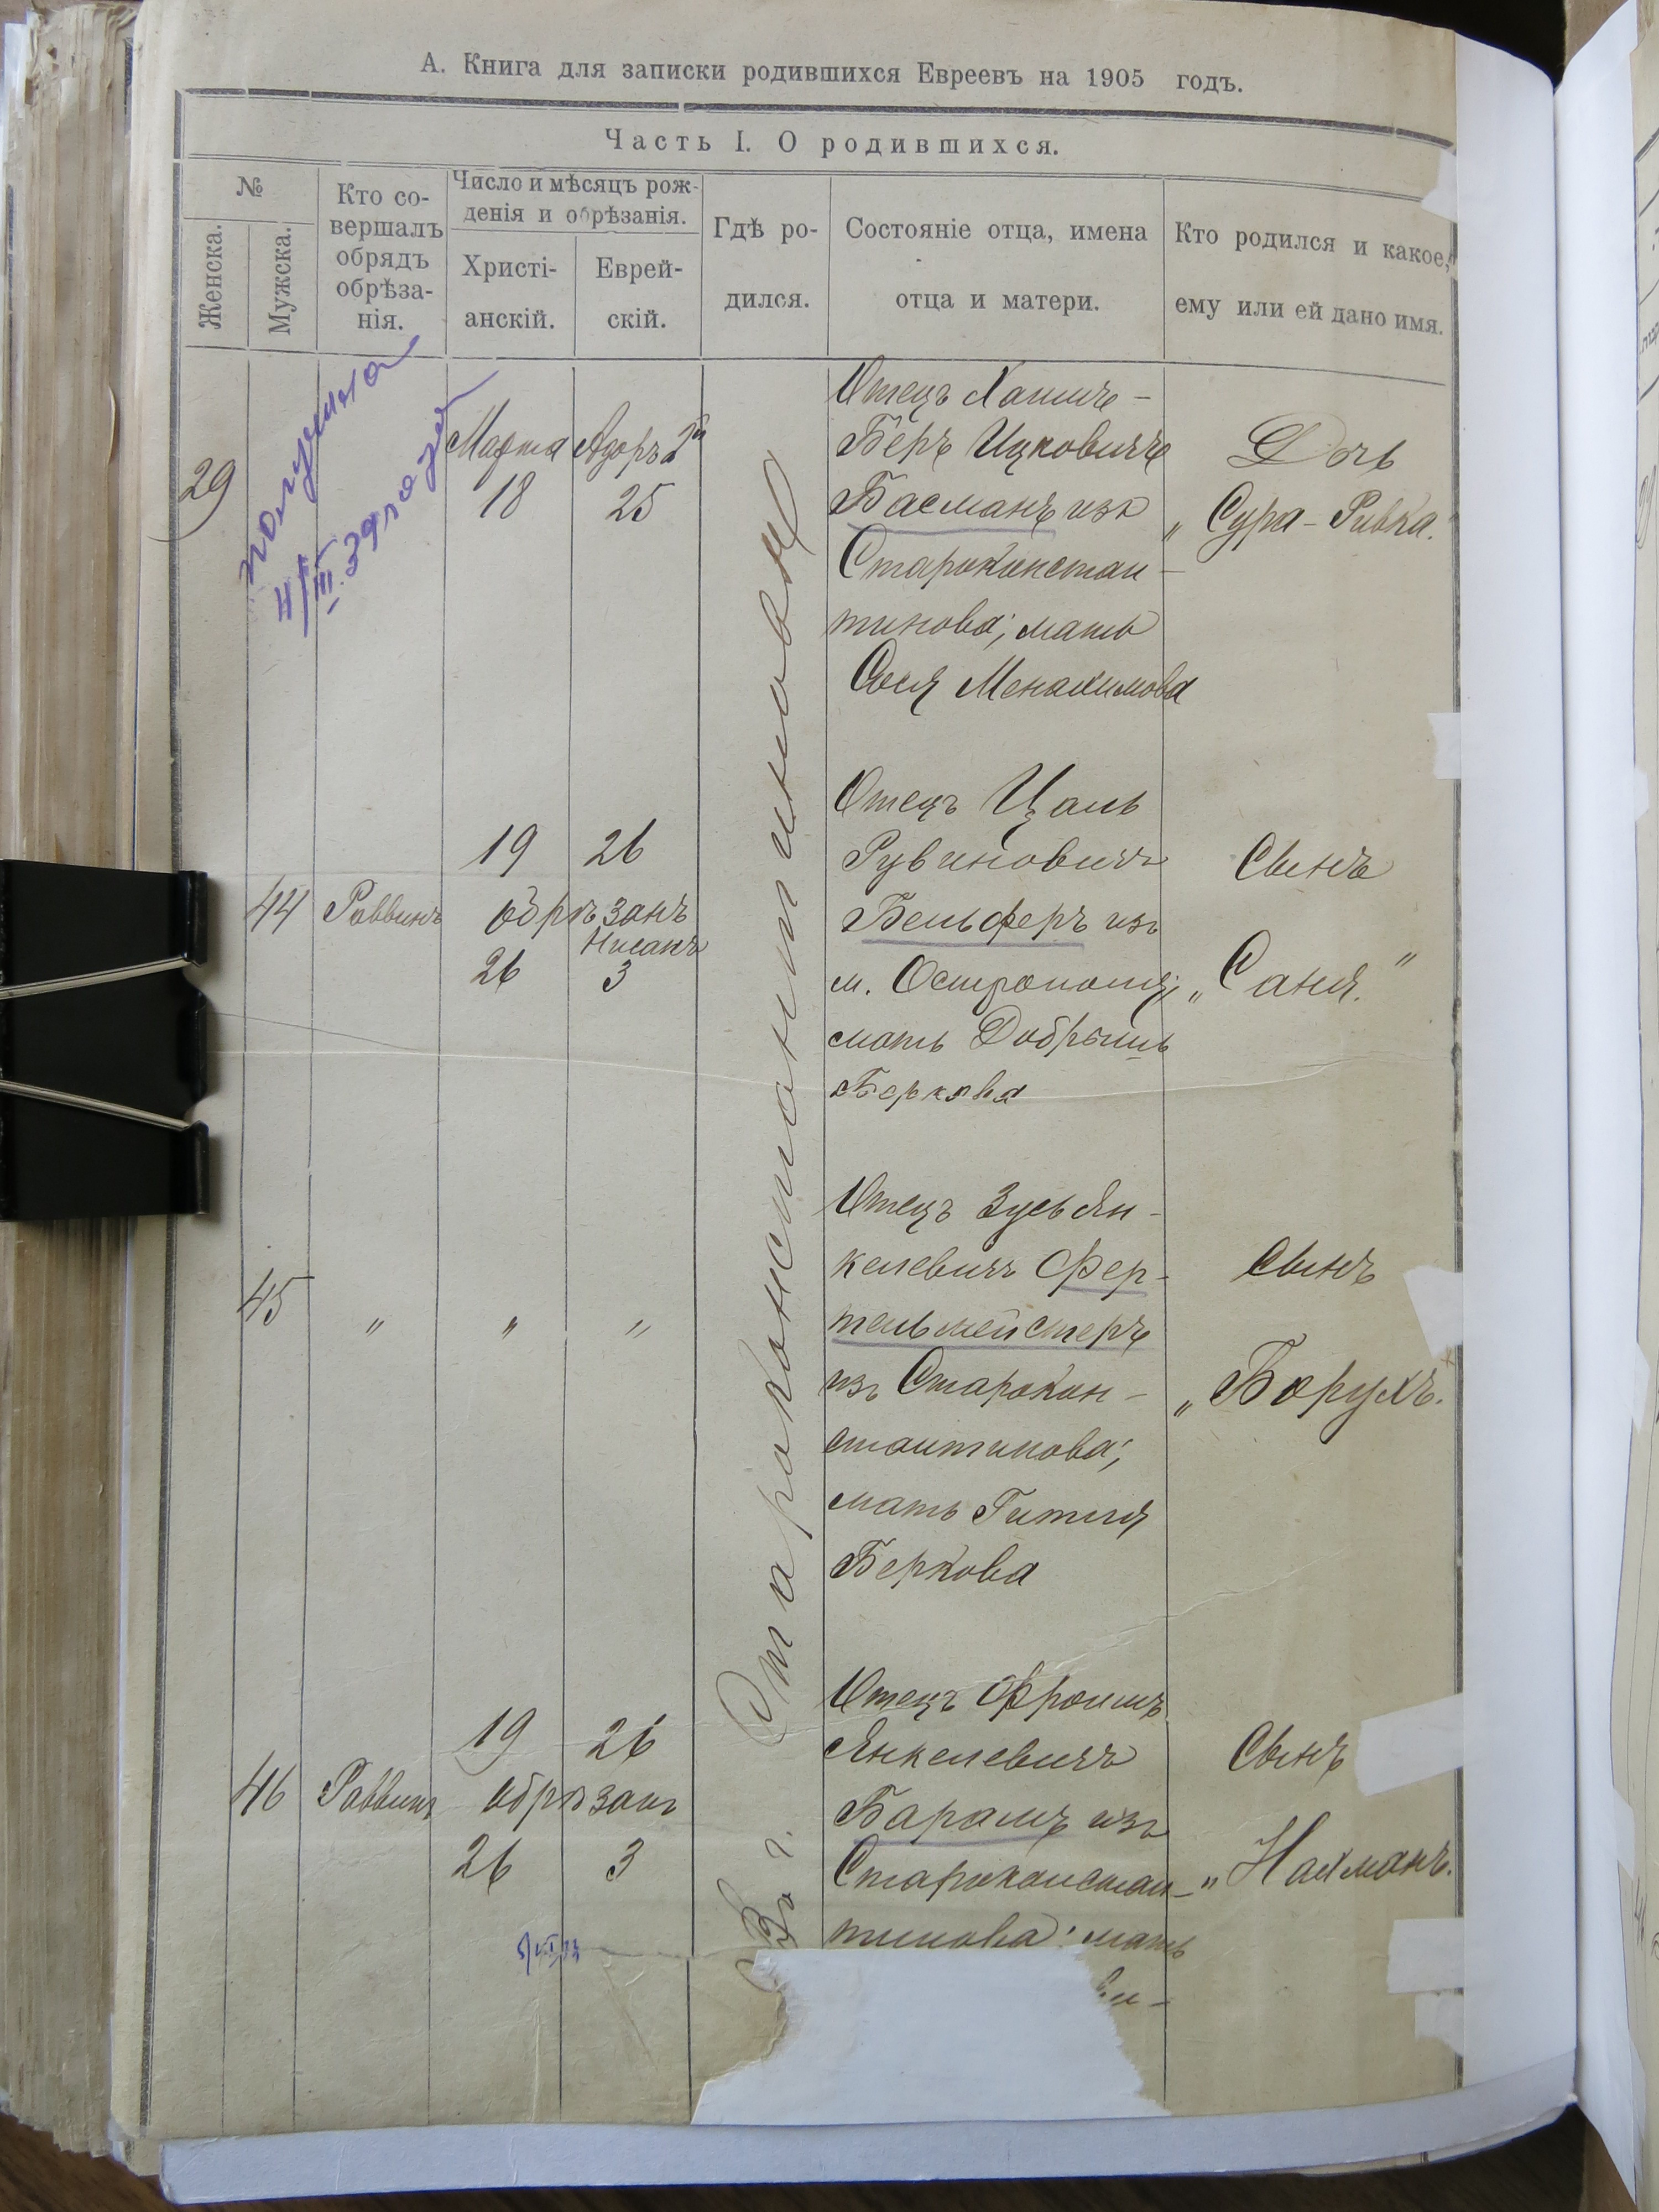 А. Книга для записки родившихся Евреевъ на 1905 годъ.
Часть I. О родившихся.
№
Женска.
Мужска.
Кто со-
вершалъ
обрядъ
обрѣза-
нія.
Число и мѣсяцъ рож-
денія и обрѣзанія.
Христі-
анскій.
Еврей-
скій.
Гдѣ ро-
дился.
Состояніе отца, имена
отца и матери.
Кто родился и какое,
ему или ей дано имя.
Въ г. Староконстантиновѣ
получила
4/III 39 года
29
Марта
18
Адаръ 2й
25
Отецъ Хаимъ-
Беръ Ицковичъ
Басманъ изъ
Староконстан-
тинова; мать
Сося Менахимова
Дочь
„Сура-Ривка.
44
Раввинъ
19 26
обрѣзанъ
Нисанъ
26 3
Отецъ Цаль
Рувиновичъ
Бельферъ изъ
м. Острополя;
мать Добрышь
Беркова
Сынъ
„Саня."
45
" " "
Отецъ Зусь Ян-
келевичъ Фер-
тельмейстеръ
изъ Старокон-
стантинова;
мать Гитля
Беркова
Сынъ
„Борухъ.
46
Раввинъ
19 26
обрѣзанъ
26 3
Отецъ Фроимъ
Янкелевичъ
Барамъ изъ
Староконстан-
тинова; мать
Сынъ
„Нахманъ.